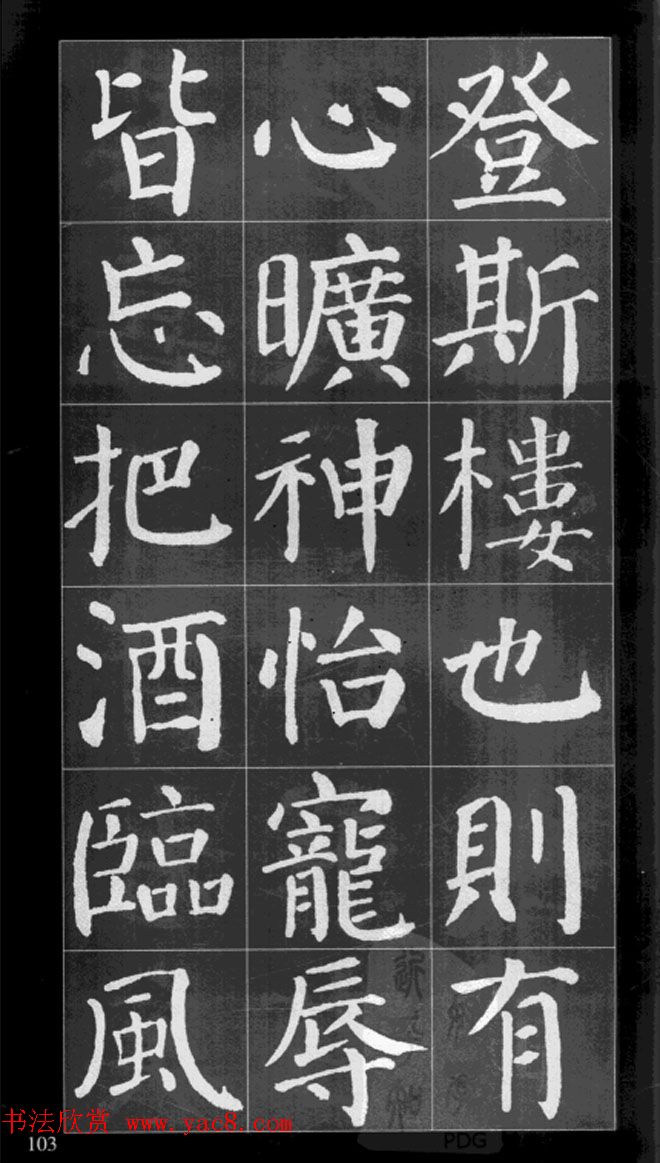 登斯樓也則有
心曠神怡寵辱
皆忘把酒臨風
书法欣赏 www.yac8.com
103
PDG